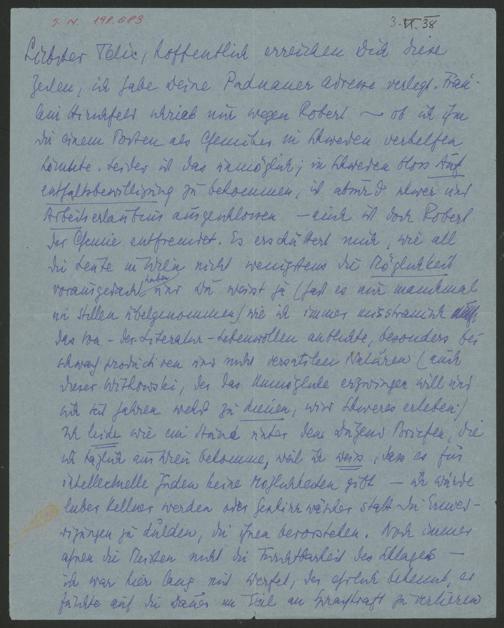 I. N. 198.683
3. VI. 38
Liebster Felix, hoffentlich erreichen Dich diese
Zeilen, ich habe Deine Paduaner Adresse verlegt. Fräu-
lein Hirschfeld schrieb mir wegen Robert – ob ich ihm
zu einem Posten als Chemiker in Schweden verhelfen
könnte. Leider ist das unmöglich; in Schweden bloss Auf-
enthaltsbewilligung zu bekommen, ist absurd schwer und
Arbeitserlaubnis ausgeschlossen – auch ist doch Robert
der Chemie entfremdet. Es erschüttert mich, wie all
die Leute in Wien nicht wenigstens die Möglichkeit
vorausgedacht haben und Du weisst ja (hast es mir manchmal
im Stillen übelgenommen) wie ich immer misstrauisch
das von-der-Literatur-Lebenwollen anblickte, besonders bei
schwach productiven und nicht versatilen Naturen (auch
dieser Witkowski, der das Unmögliche erzwingen will und
sich seit Jahren weist zu dienen, wird Schweres erleben!)
Ich leide wie ein Hund unter den Dutzend Briefen, die
ich täglich aus Wien bekomme, weil ich weiss, dass es für
intellectuelle Juden keine Möglichkeiten gibt – ich würde
lieber Kellner werden oder statt die Ernied-
rigungen zu dulden, die ihnen bevorstehen. Noch immer
ahnen die Meisten nicht die Furchtbarkeit des Alltags –
ich war hier lang mit Werfel, der ehrlich bekennt, er
fürchte auf die Dauer ein Teil an Sprachkraft zu verlieren